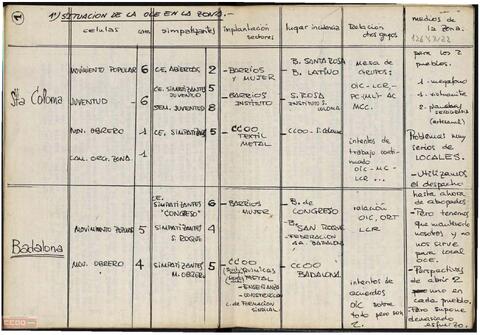 1
1º) SITUACION DE LA OCE EN LA ZONA.-
celulas
con
simpatizantes
implantación
sectores
lugar incidencia
Relacion
otros grupos
medios de
la zona.
Sta Coloma
MOVIMIENTO POPULAR - 6
CE. ABIERTOS 2
- BARRIOS
Y MUJER
B. SANTA ROSA
B. LATINO
Mesa de
GRUPOS:
OIC-LCR-
PC-MUP-AC
MCC.
JUVENTUD - 6
CE. SIMPATIZANTES 5
JUVENTUD
SEM. JUVENTUD 8
- BARRIOS
INSTITUTO
S. ROSA
INSTITUTO S.
COLOMA
MOV. OBRERO - 1
CE. SIMPATIZ. 5
- CCOO
TEXTIL
METAL
CCOO - S. Coloma
intentos de
trabajo conti-
nuado
OIC-MC-
LCR...
CAL. ORG. ZONA - 1
para los 2
pueblos.
- 1 megafono
- 1
- 2
(artesanal)
Problemas muy
serios de
LOCALES.
- Utilizamos
el despacho
Badalona
CE.
SIMPATIZANTES 6
"CONGRESO"
- BARRIOS
MUJER
- B. de
CONGRESO
relación
OIC, ORT
LCR
MOVIMIENTO POPULAR 5
SIMPATIZANTES 4
S. ROQUE
B.
SAN ROQUE
FEDERACION
AA. BADALONA
MOV. OBRERO 4
SIMPATIZANTES 5
M. OBRER.
CCOO
QUIMICAS
METAL
- ENSEÑANZA
- CONSTRUCCION
C. de FORMACION
SINDICAL
CCOO
BADALONA
intentos de
acuerdos
OIC sobre
todo pero son
2.
hasta ahora
de abogados
- Pero tenemos
que mantenerlo
nosotros y no
nos sirve
para local
OCE.
- Perspectivas
de abrir 2
- uno en
cada pueblo.
- Pero supone
demasiado
esfuerzo.
CCOO